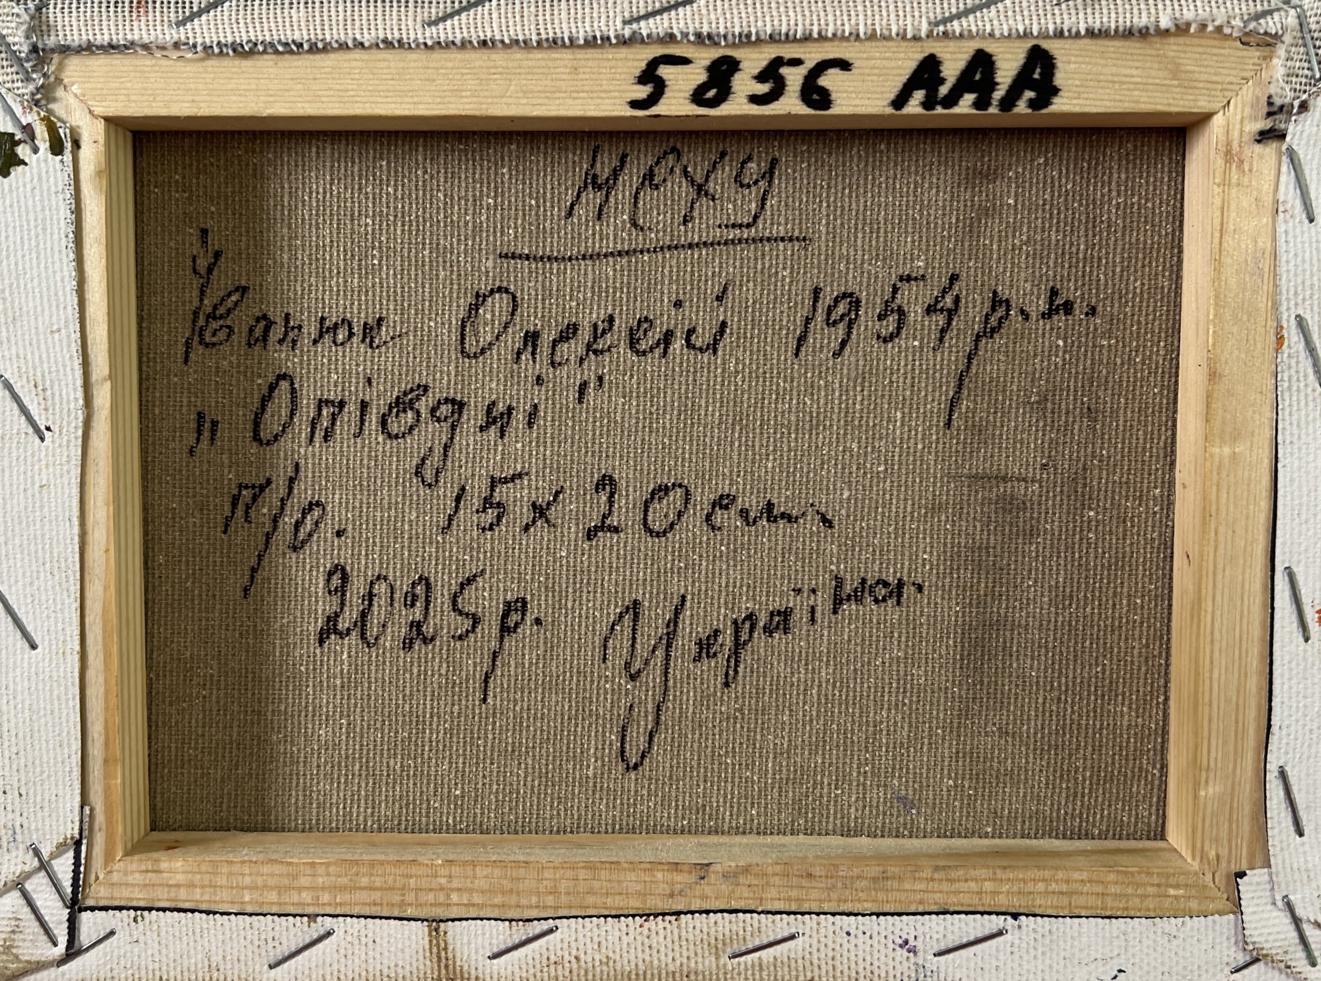 5856 ААА
НСХУ
Іванюк Олексій 1954 р.н.
„Опівдні"
п/о. 15х20 см.
2025р. Україна.